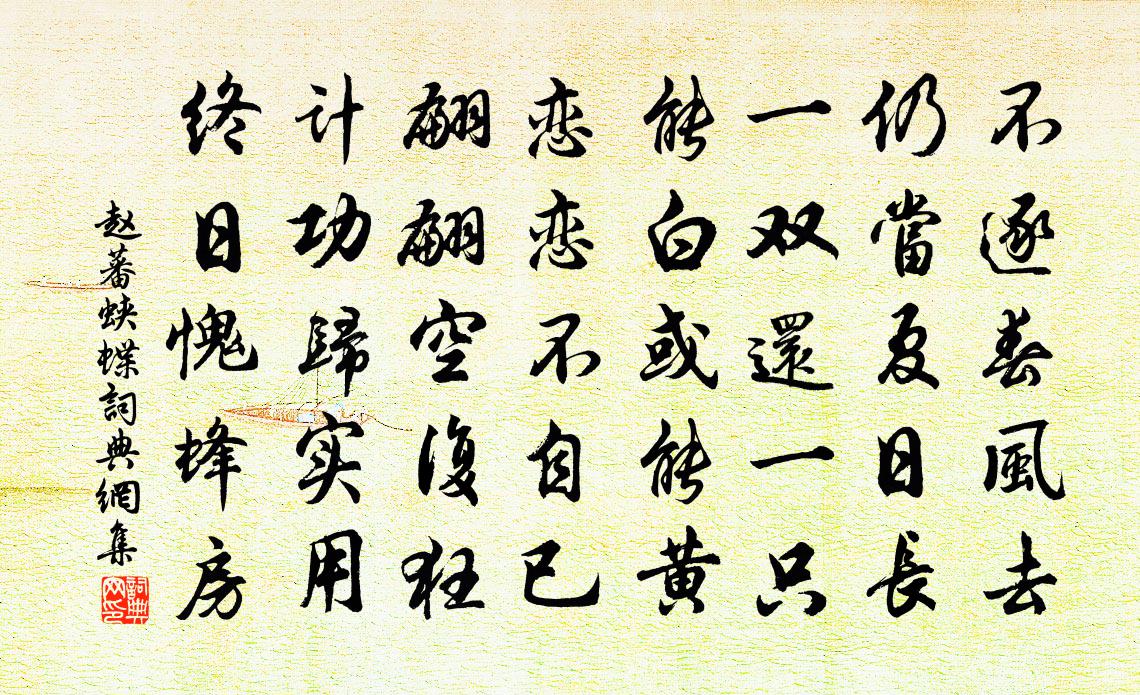 不逐春風去
仍當夏日長
一双還一只
能白或能黄
恋恋不自已
翩翩空復狂
计功歸实用
终日愧蜂房
赵蕃蛱蝶詞典網集
詞典网印